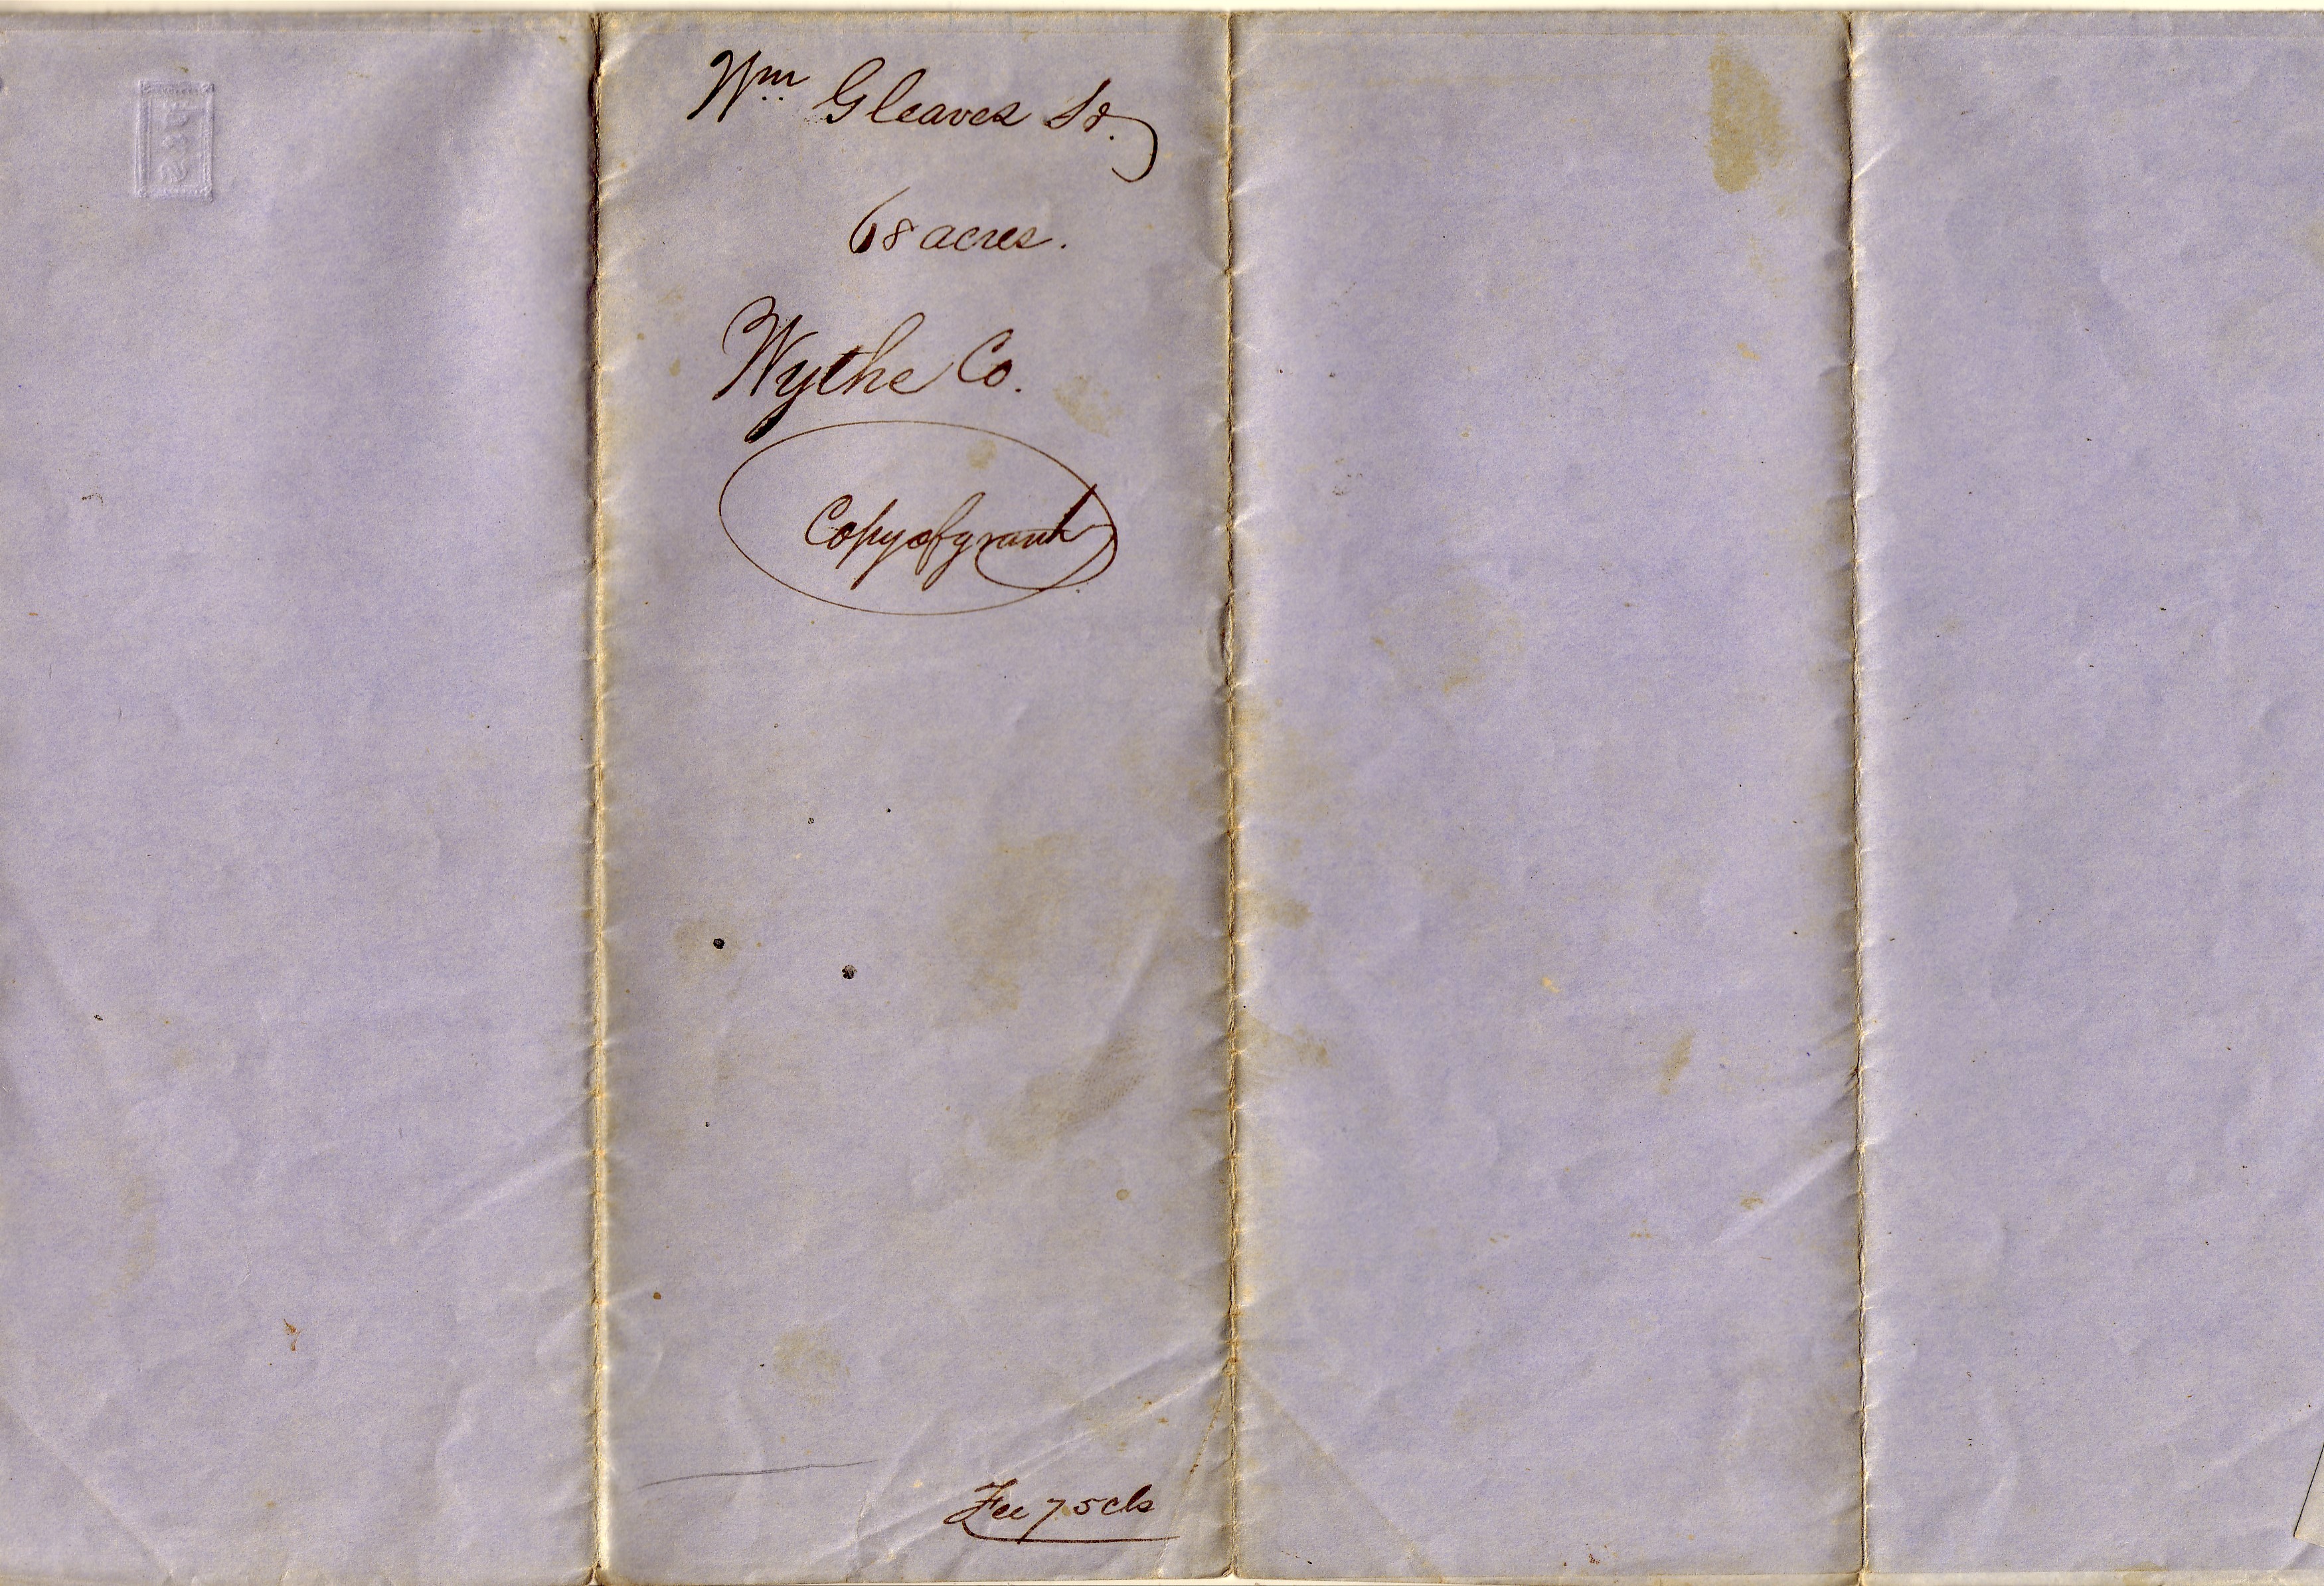 Wm Gleaves Sr.
68 acres.
Wythe Co.
Copy of grant
Fee 75 cts